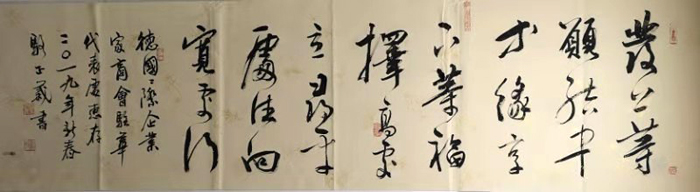 發上等
願結中
等緣享
下等福
擇高處
立尋平
處住向
寬處行
德國〻際企業
家商會駐華
代表處惠存
二〇一九年新春
書